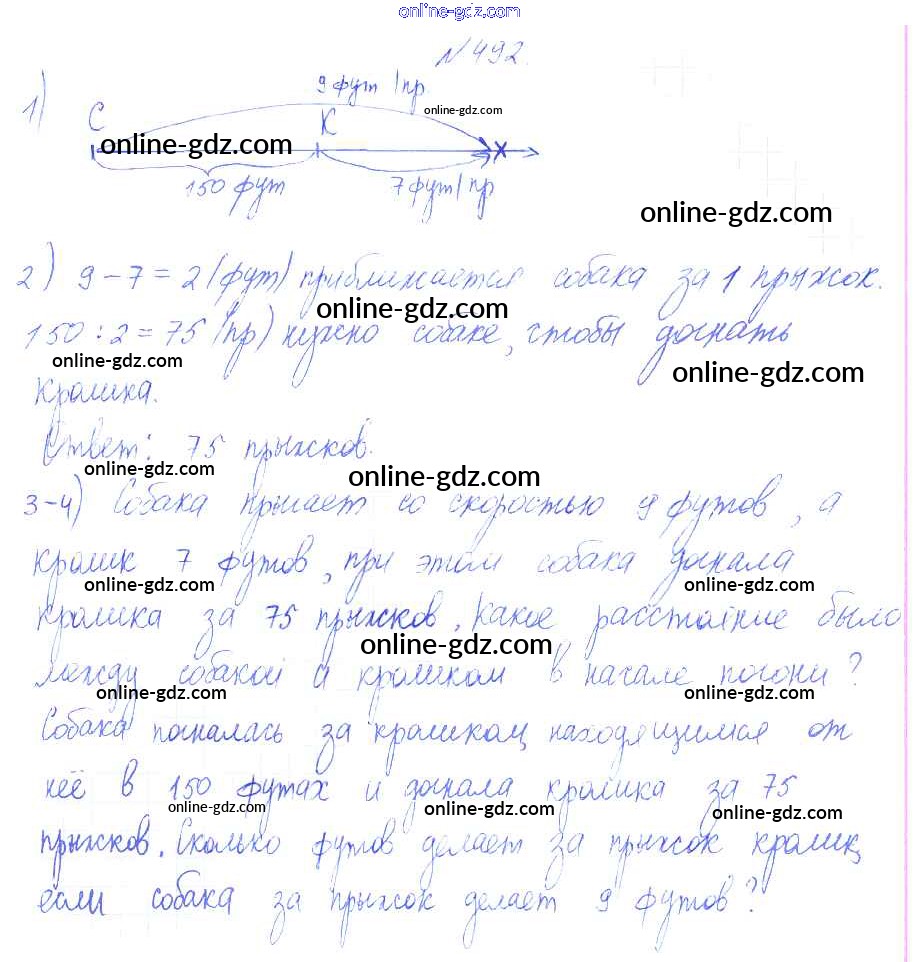 online-gdz.com
№492.
1)
9 фут /пр
online-gdz.com
С
К
online-gdz.com
150 фут
7 фут/пр
online-gdz.com
2) 9-7=2 (фут) приближается собака за 1 прыжок.
online-gdz.com
150:2=75 (пр) нужно собаке, чтобы догнать
online-gdz.com
online-gdz.com
кролика.
Ответ: 75 прыжков.
online-gdz.com
online-gdz.com
3-4) Собака прыгает со скоростью 9 футов, а
кролик 7 футов, при этом собака догнала
online-gdz.com
online-gdz.com
кролика за 75 прыжков. Какое расстояние было
online-gdz.com
между собакой и кроликом в начале погони?
online-gdz.com
online-gdz.com
Собака погналась за кроликом, находящимся от
неё в 150 футах и догнала кролика за 75
online-gdz.com
online-gdz.com
online-gdz.com
прыжков. Сколько футов делает за прыжок кролик,
если собака за прыжок делает 9 футов?